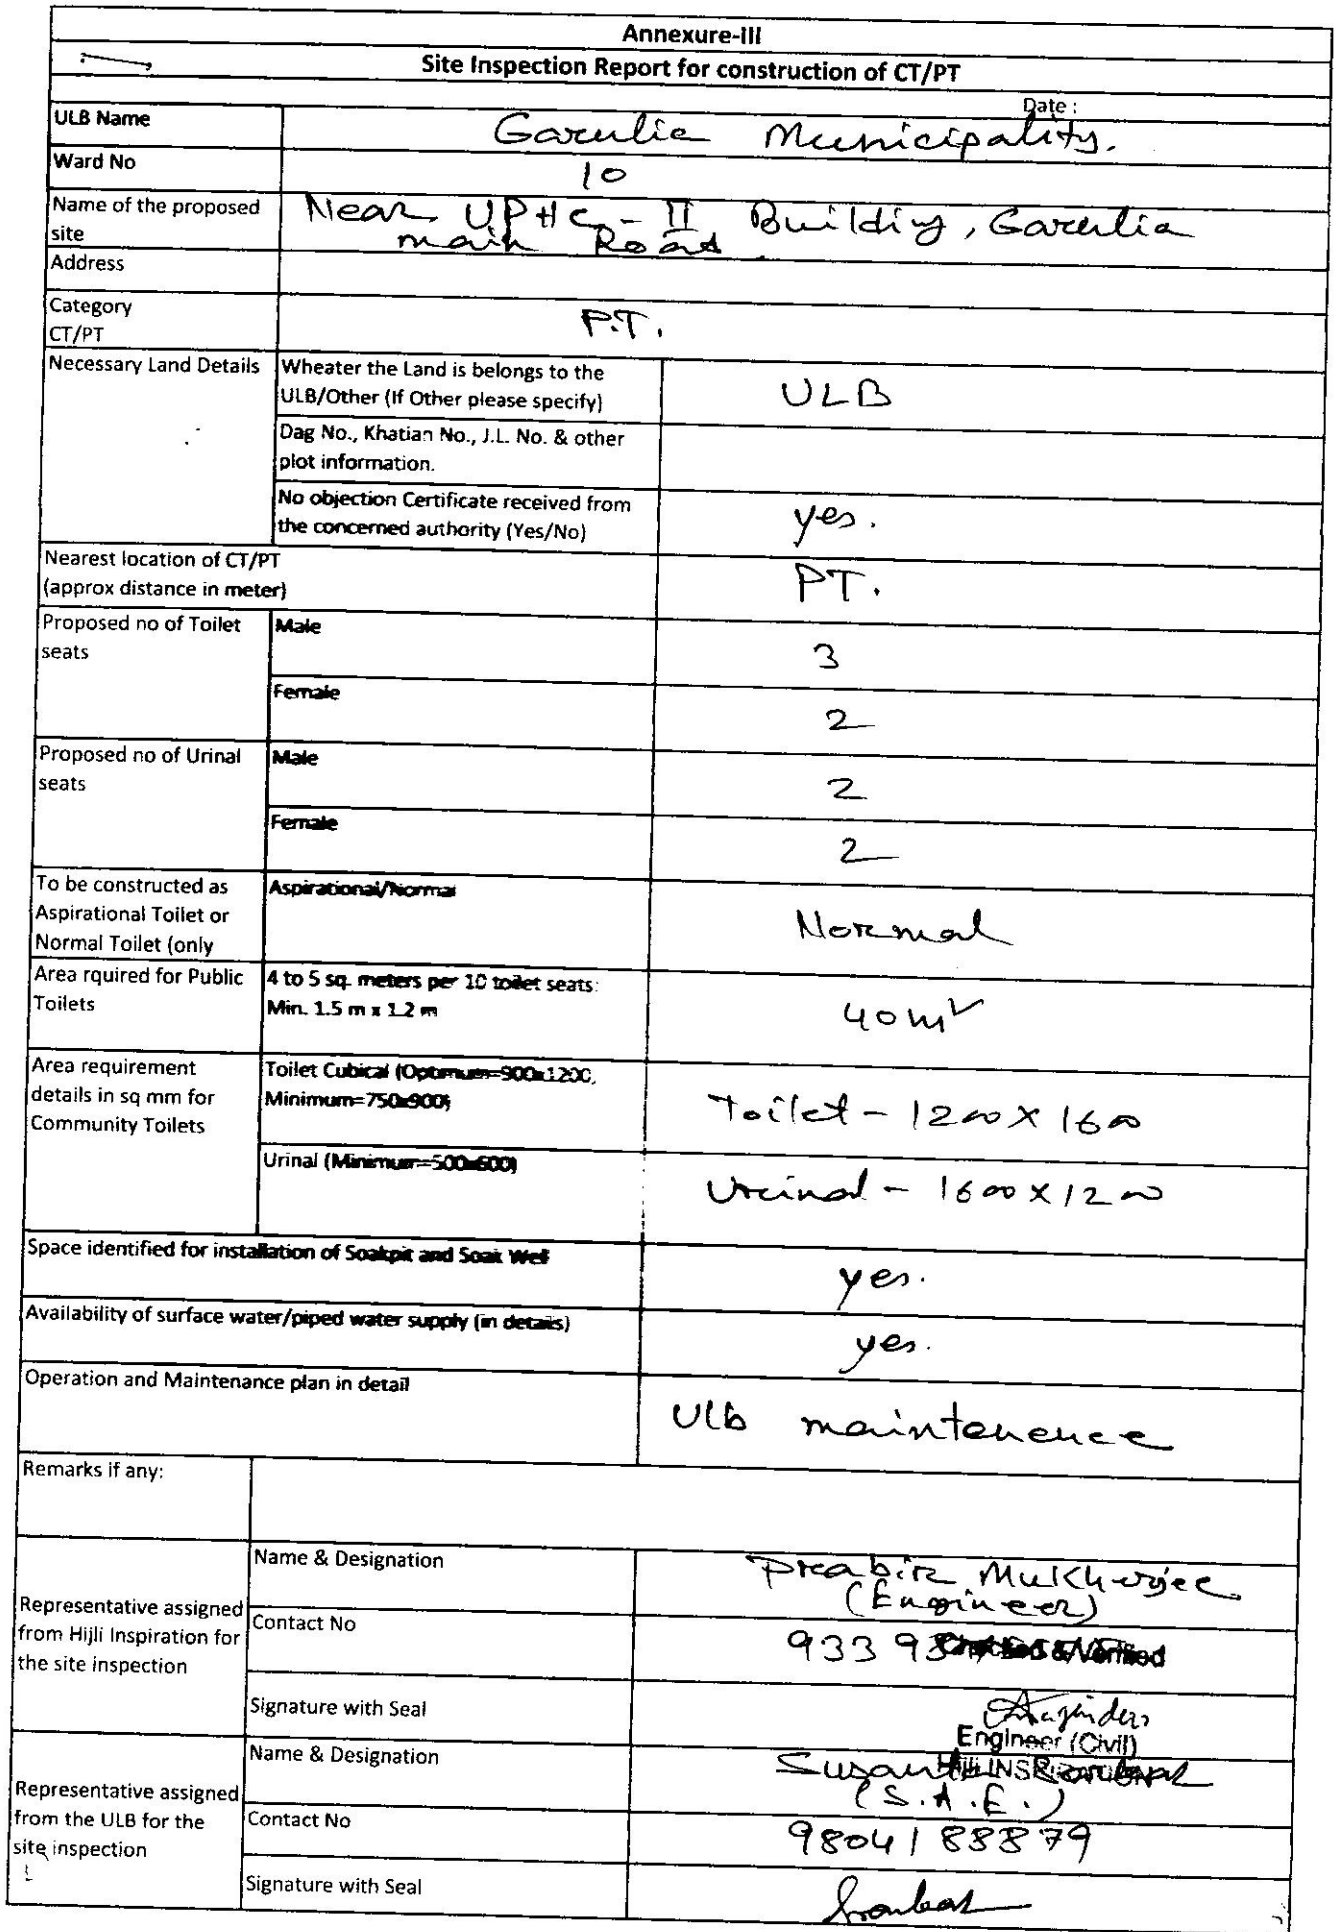 Annexure-III
Site Inspection Report for construction of CT/PT
Date :
ULB Name Garulia Municipality.
Ward No 10
Name of the proposed site Near UPHC-II Building, Garulia
main Road.
Address
Category
CT/PT P.T.
Necessary Land Details Wheater the Land is belongs to the
ULB/Other (If Other please specify) ULB
Dag No., Khatian No., J.L. No. & other
plot information.
No objection Certificate received from
the concerned authority (Yes/No) yes.
Nearest location of CT/PT
(approx distance in meter) PT.
Proposed no of Toilet
seats
Male 3
Female 2
Proposed no of Urinal
seats
Male 2
Female 2
To be constructed as
Aspirational Toilet or
Normal Toilet (only
Aspirational/Normal Normal
Area rquired for Public
Toilets
4 to 5 sq. meters per 10 toilet seats:
Min. 1.5 m x 1.2 m
40 m²
Area requirement
details in sq mm for
Community Toilets
Toilet Cubical (Optimum=900x1200,
Minimum=750x900)
Toilet - 1200 X 1600
Urinal (Minimum=500x600)
Urinal - 1600 X 1200
Space identified for installation of Soakpit and Soak Well yes.
Availability of surface water/piped water supply (in details) yes.
Operation and Maintenance plan in detail
Ulb maintenence
Remarks if any:
Representative assigned
from Hijli Inspiration for
the site inspection
Name & Designation Prabir Mukherjee
(Engineer)
Contact No 933 93
Checked & Verified
Signature with Seal
Engineer (Civil)
Hijli INSPIRATION
Representative assigned
from the ULB for the
site inspection
Name & Designation Susanta Sarkar
(S.A.E.)
Contact No 9804188879
Signature with Seal Sarkar